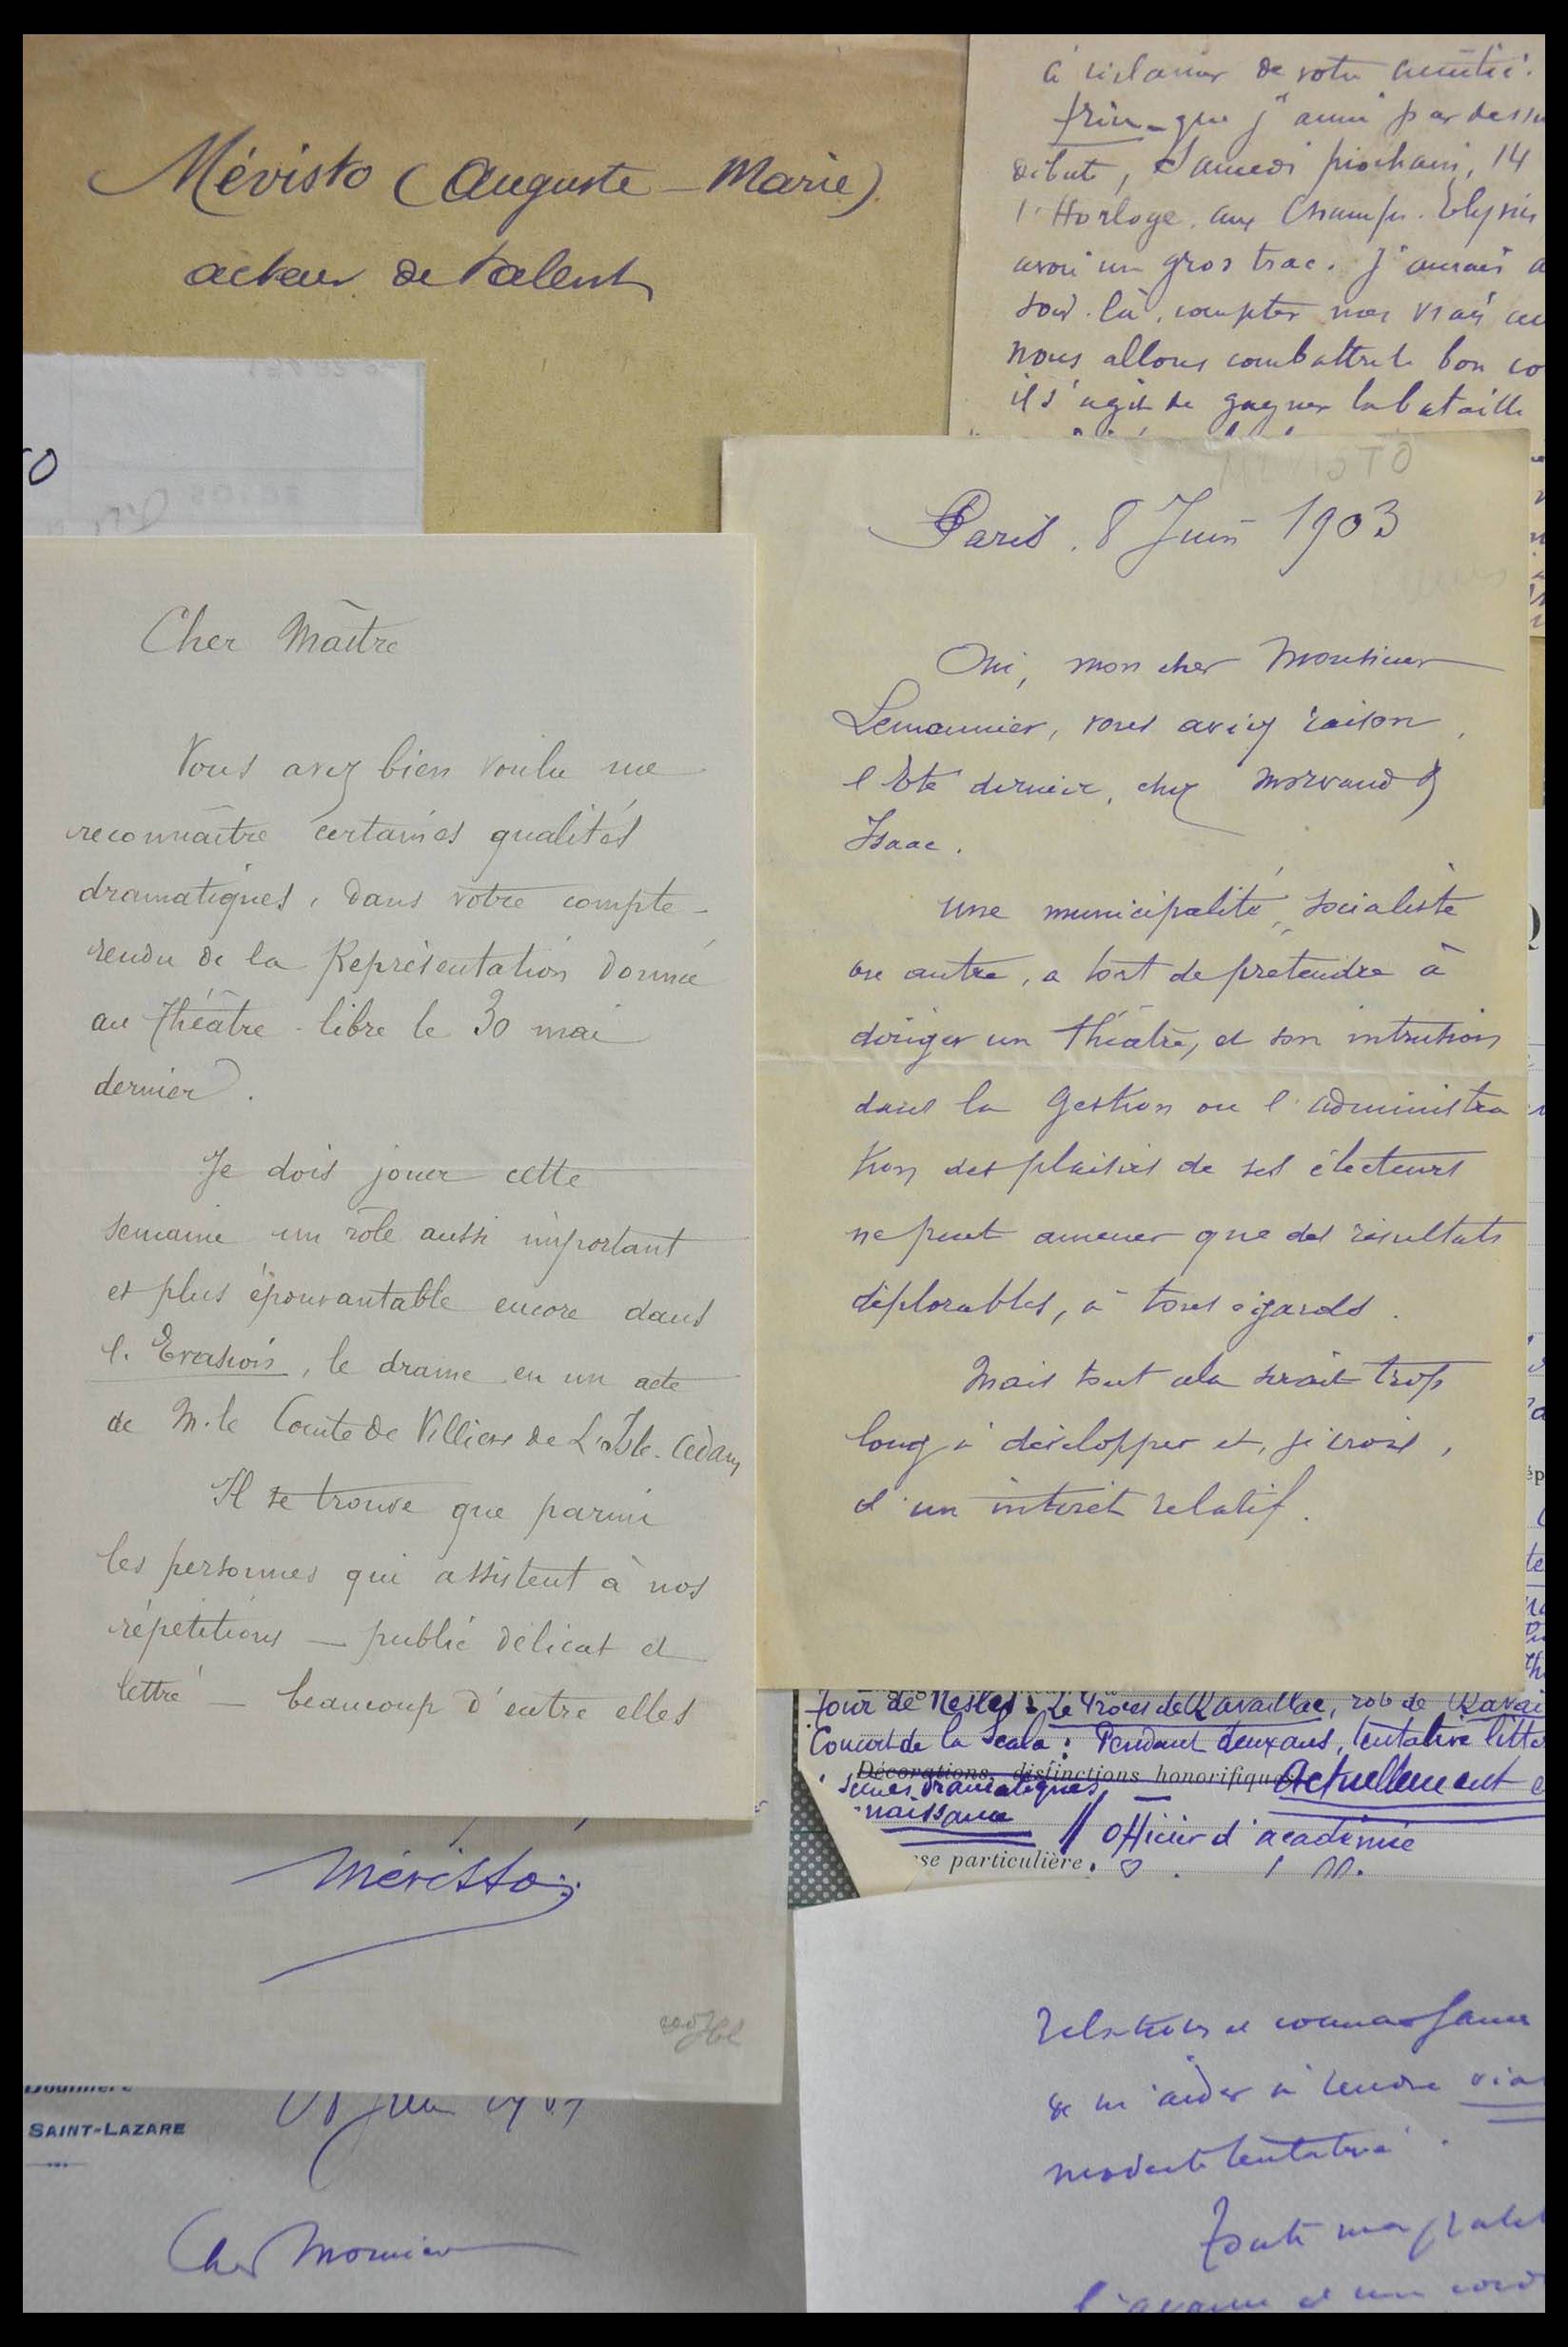 Mévisto (Auguste-Marie)
acteur de talent
à réclamer de votre amitié.
que j'ai par dessus
débute, Samedi prochain, 14
l'Horloge aux Champs-Elysées
avoir un gros trac. J'aurais
soir-là, compter mes vrais
nous allons combattre le bon
il s'agit de gagner la bataille
MEVISTO
Paris. 8 Juin 1903
Oui, mon cher Monsieur
Lemonnier, vous aviez raison,
l'Eté dernier, chez Morvand &
Isaac.
Une municipalité, socialiste
ou autre, a tort de prétendre à
diriger un théâtre, et son intrusion
dans la gestion ou l'administra
tion des plaisirs de ses électeurs
ne peut amener que des résultats
déplorables, à tous égards.
Mais tout cela serait trop
long à développer et, je crois,
d'un intérêt relatif.
Cher Maître
Vous avez bien voulu me
reconnaître certaines qualités
dramatiques, dans votre compte-
rendu de la Représentation donnée
au théâtre-libre le 30 mai
dernier.
Je dois jouer cette
semaine un rôle aussi important
et plus épouvantable encore dans
l'Evasion, le drame en un acte
de M. le Comte de Villiers de L'Isle-Adam
Il se trouve que parmi
les personnes qui assistent à nos
répétitions — public délicat et
lettré — beaucoup d'entre elles
Tour de Nesles : Le Procès de Ravaillac, rôle de Ravai
Concert de la Scala : Pendant deux ans, tentative litté
Décorations, distinctions honorifiques Actuellement
scènes dramatiques
naissance // Officier d'académie
sse particulière.
Mévisto
SAINT-LAZARE
Juin
Cher Monsieur
relations et connaissances
de m'aider à rendre
modeste tentative.
Toute ma
l'avance et un